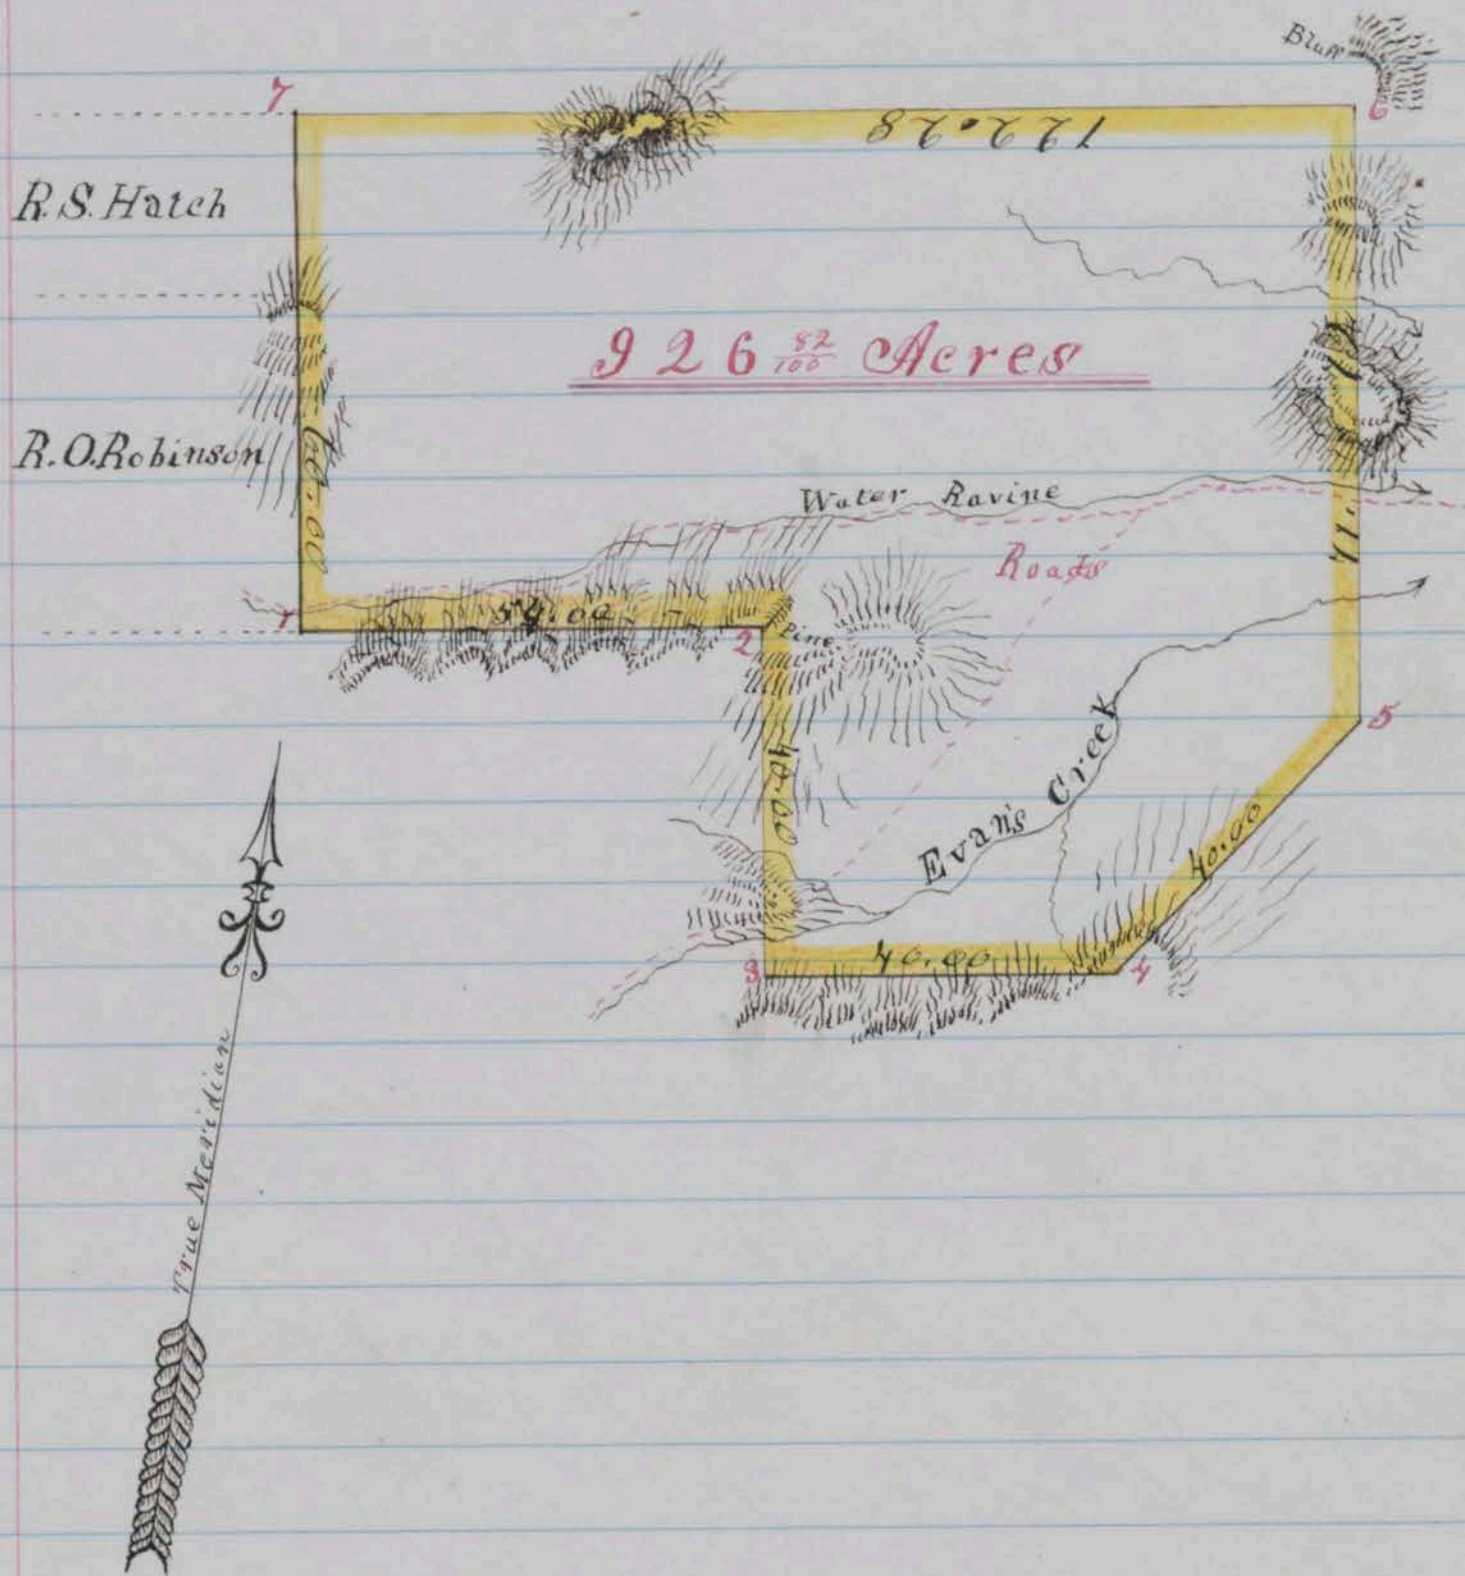 Bluff
7
6
122.28
R.S. Hatch
926 82/100 Acres
R.O. Robinson
60.00
71.72
Water Ravine
Roads
1
54.00
2
Pine
5
40.00
Evan's Creek
40.00
3
40.00
4
True Meridian